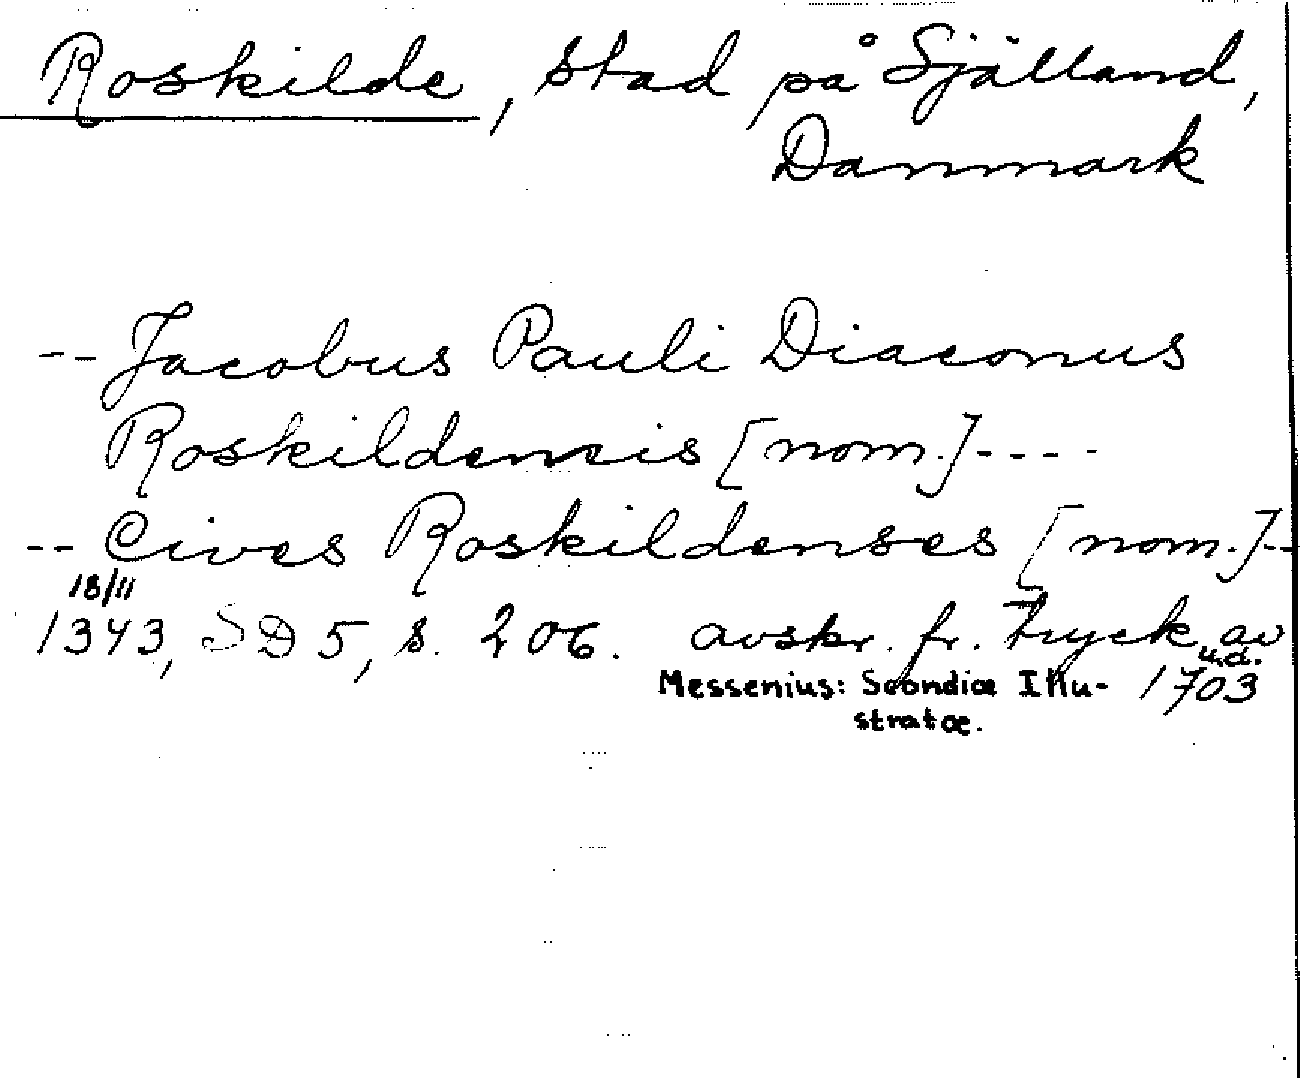 Roskilde, stad på Själland,
Danmark
-- Jacobus Pauli Diaconus
Roskildensis [nom.]----
-- Cives Roskildenses [nom.]--
18/11
1343, SD 5, s. 206. avskr. fr. tryck av
u.d.
Messenius: Scondiæ Illu- 1703
stratæ.